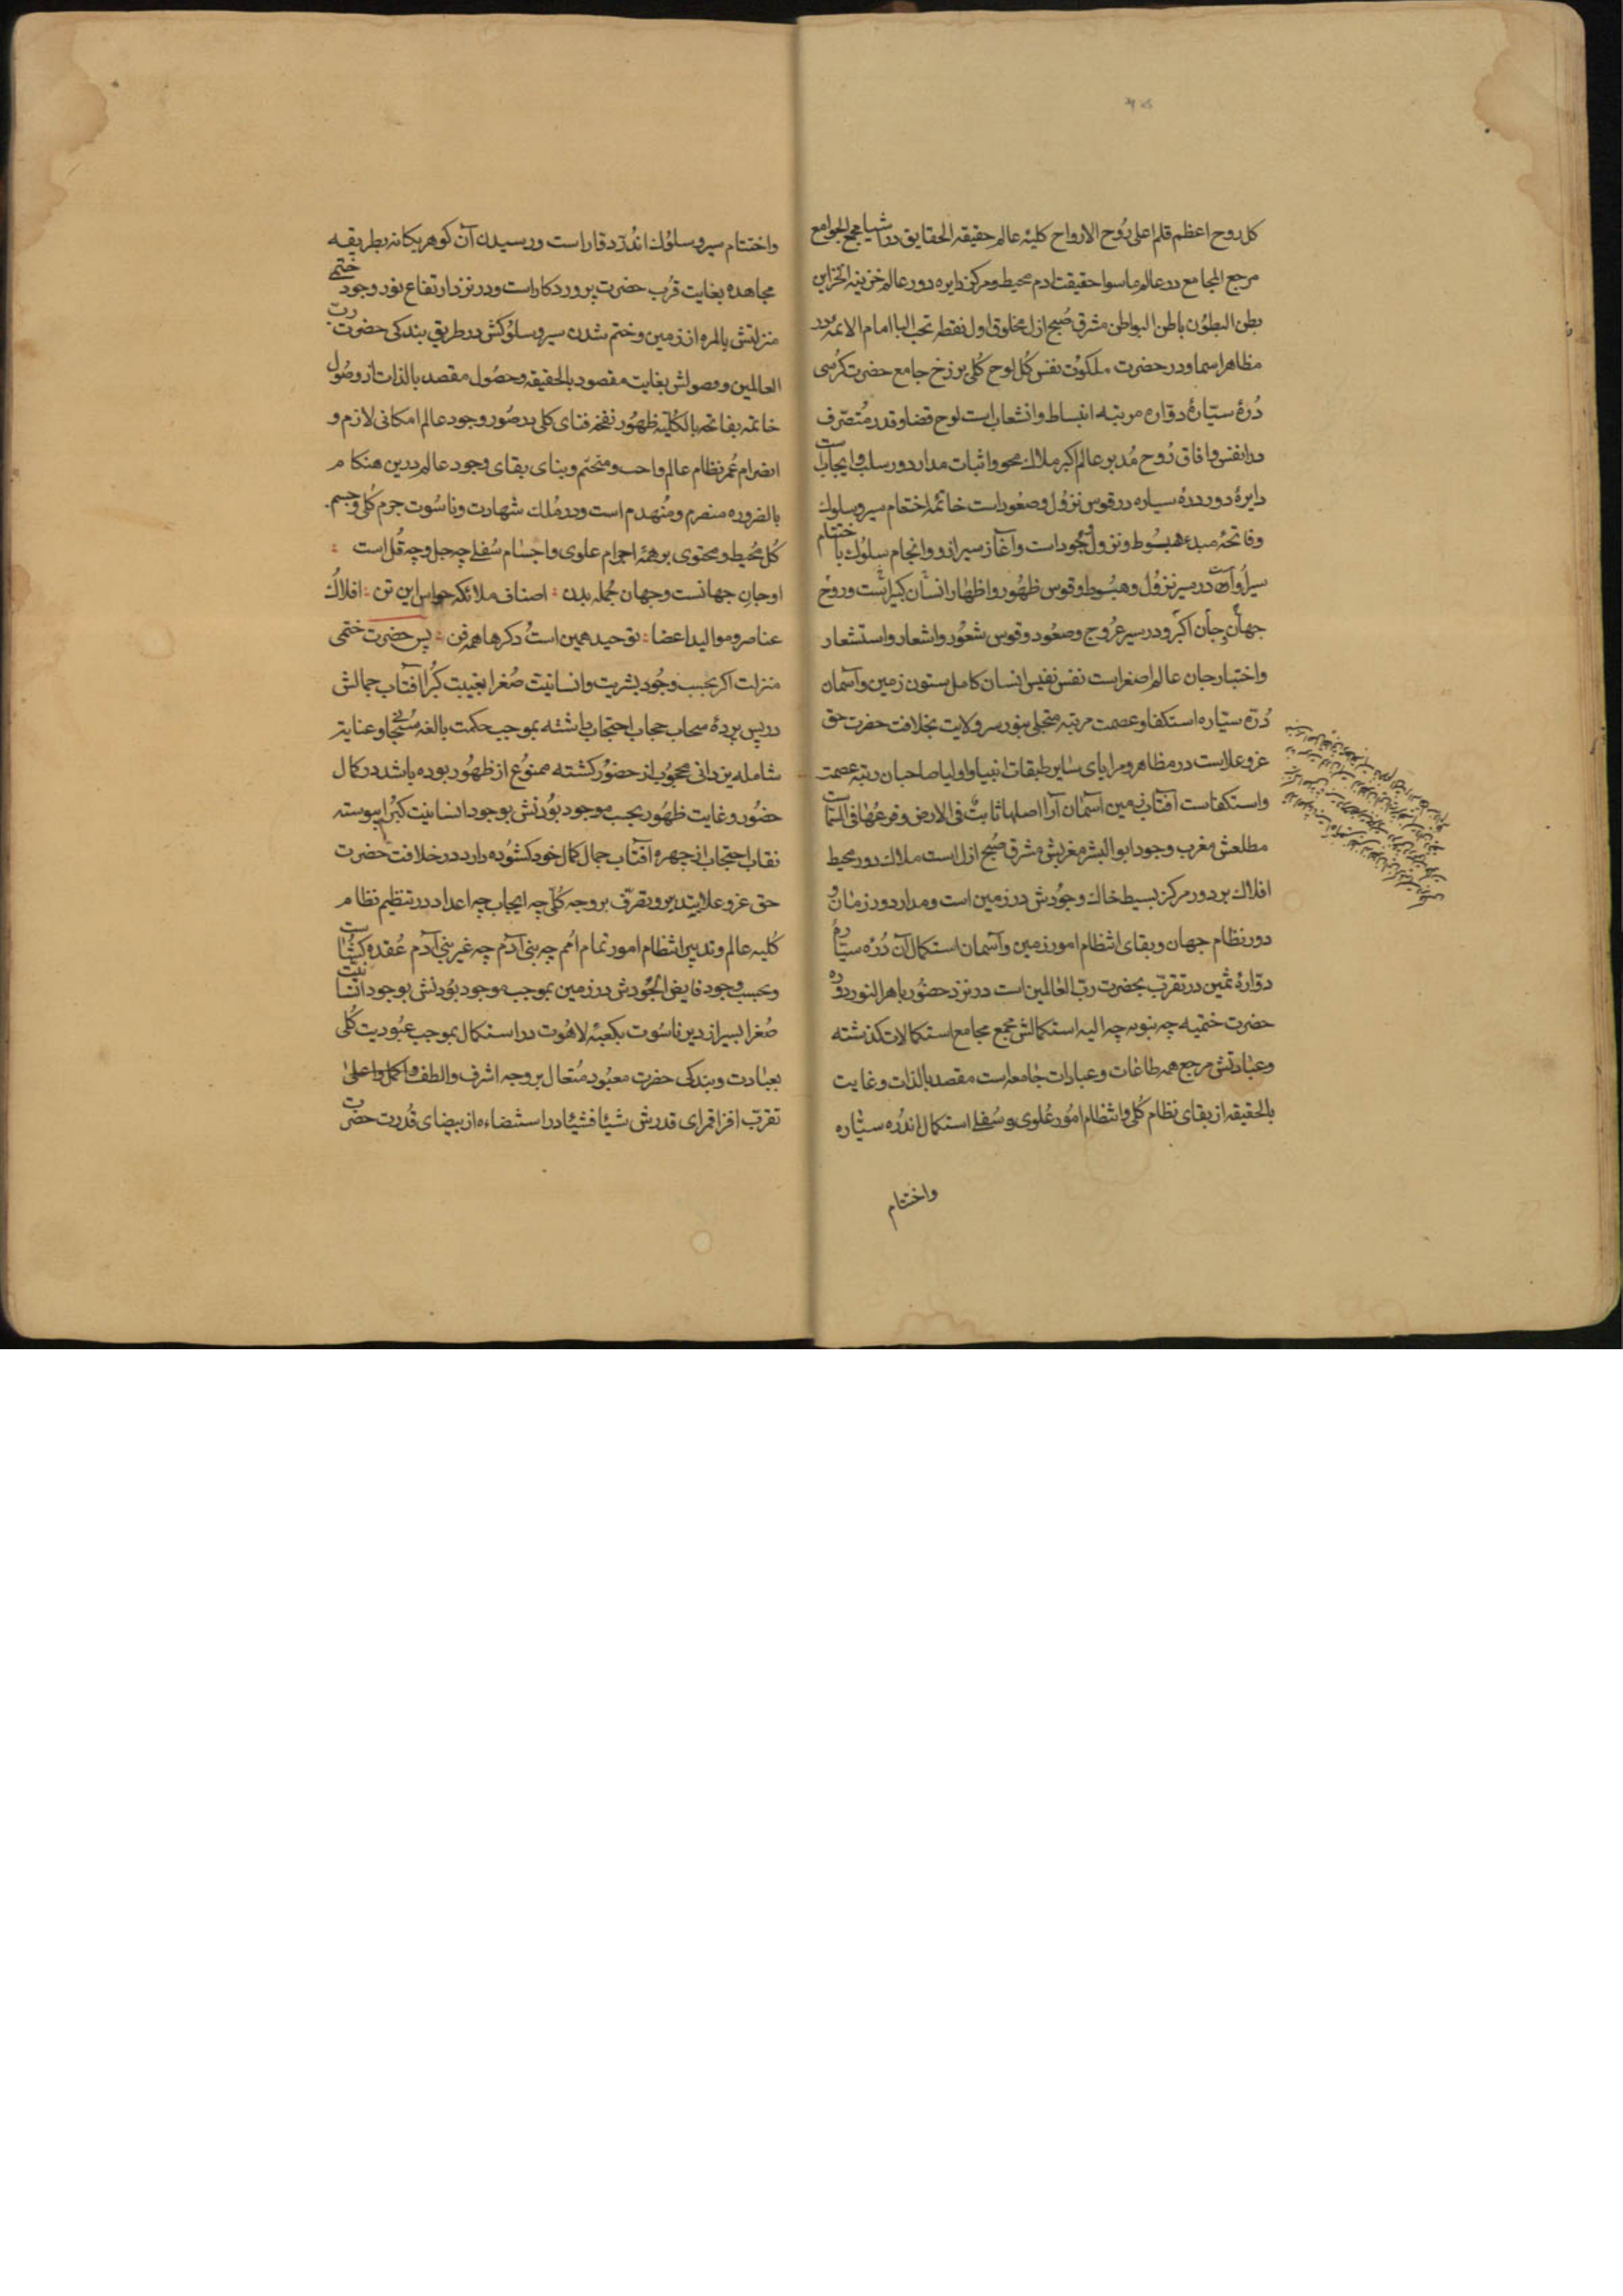 کل روح اعظم قلم اعلی رُوح الارواح کلیهٔ عالم حقیقه الحقایق در اشیا مجمع الجوامع
مرجع المجامع در عالم ماسوا حقیقت ادم محیط و مرکز دایره دور عالم خزینه الخزاین
بطن البطوُن باطن البواطن مشرق صُبح ازل مخلوق اول نقطه تحت البا امام الائمه در
مظاهر اسما و در حضرت ملکوُت نفس کُل لوح کُلی برزخ جامع حضرت کرُسی
دُرهٔ سیّارهٔ دوّاره مرتبه انبساط و انشعاب است لوح قضا و قدر مُتصرّف
در انفس و افاق رُوح مُدبر عالم اکبر ملاک محو و اثبات مدار دور سلب و ایجاب است
دایرهٔ دور درهٔ سیاره در قوس نزوُل و صعوُد است خاتمهٔ اختتام سیر و سلوک
و فاتحهٔ مبدء هبُسوط و نزول وجُود است و آغاز سیر ازو و انجام سلوُک با ختتام
سیر اُو است در سیر نزوُل و هبُسوط و قوس ظهُور و اظهار انسان کبیر است و روح
جهان جان اکبر و در سیر عرُوج و صعوُد و قوس شعوُر و اشعار و استشعار
و اختیار جان عالم اصغر است نفس نفیس انسان کامل ستون زمین و آسمان
دُرّه سیّاره استکفا و عصمت مرتبه متجلی بنور سر ولایت بخلافت حضرت حق
عز و علاست در مظاهر و مرایای سایر طبقات انبیا و اولیا صاحبان رتبه عصمت
و استکفاست آفتاب زمین آسمان آرا اصلها ثابتٌ فی الارض و فرعُها فی السّمآست
مطلعش مغرب وجود ابو البشر مغربش مشرق صُبح ازل است ملاک دور محیط
افلاک بر دور مرکز بسیط خاک وجوُدش در زمین است و مدار دور زمان و
دور نظام جهان و بقای انتظام امور زمین و آسمان استکمال آن دُرّه سیّارهُ
دوّارهٔ ثمین در تقرّب بحضرت ربّ العالمین است در نزد حضوُر باهر النور دوره
حضرت ختمیه چه نبویه چه الیه استکمالش مجمع مجامع استکمالات گذشته
و عبادتش مرجع همه طاعات و عبادات جامعه است مقصد بالذات و غایت
بالحقیقه از بقای نظام کُلی و انتظام امُور عُلوی و سُفلے استکمال اندُره سیّاره
واختتام
واختتام سیر و سلوُک اندُرّه دقار است و رسیدن آن گوهر یکانه بطریقه
مجاهده بغایت قرُب حضرت پروردکار است و در نزد ارتفاع نور وجود ختمے
منزلتش بالمره از زمین و ختم شدن سیر و سلوُکش در طریق بندکی حضرت ربّ
العالمین و وصولش بغایت مقصود بالحقیقه و حصُول مقصد بالذات از وصُول
خاتمه بفاتحه بالکُلّیه ظهوُر نفخه فنای کلی در صُور وجود عالم امکانی لازم و
انصرام عُمر نظام عالم واجب و منحتم و بنای بقای وجود عالم درین هنکام
بالضروره منصرم و منُهدم است و در مُلک شهادت و ناسُوت جرم کُلی و جسم
کُل مُحیط و محتوی بر همهٔ اجرام علوی و اجسام سُفلے چه جل و چه قُل است :
او جان جهانست و جهان جُمله بدن : اصناف ملائکه حواس این تن : افلاکُ
عناصر و موالید اعضا : توحید همین است دکرها همه فن : پس حضرت ختمی
منزلت اکر بحسب وجوُد بشریت و انسانیت صُغرا بغیبت کُبرا آفتاب جمالش
در پس پردهٔ سحاب حجاب احتجاب داشته بموجب حکمت بالغه سُبحانی و عنایت
شامله یزدانی محجوُب از حضوُر کشته ممنوُع از ظهوُر بوده باشد در کمال
حضوُر و غایت ظهوُر بحسب موجود بوُدنش بوجود انسانیت کبُرا پیوسته
نقاب احتجاب از چهره آفتاب جمال کمال خود کشوُده دارد در خلافت حضرت
حق عز و علا بتدبیر و تصرّف بر وجه کُلّی چه ایجاب چه اعداد در تنظیم نظام
کُلیه عالم و تدبیر انتظام امور تمام امُم چه بنی آدم چه غیر بنی آدم عُقده کشُاست
و بحسب وجود فایض الجُودش در زمین بموجب موجود بوُدنش بوجود انسانیت
صُغرا بسیر از دیر ناسُوت بکعبهٔ لاهُوت در استکمال بموجب عبُودیت کُلی
بعبادت و بندکی حضرت معبُود مُتعال بر وجه اشرف و الطف و اکمل و اعلی
تقرّب افزا قمرای قدرش شیئا فشیئا در استضاءه از بیضای قدُرت حضرت